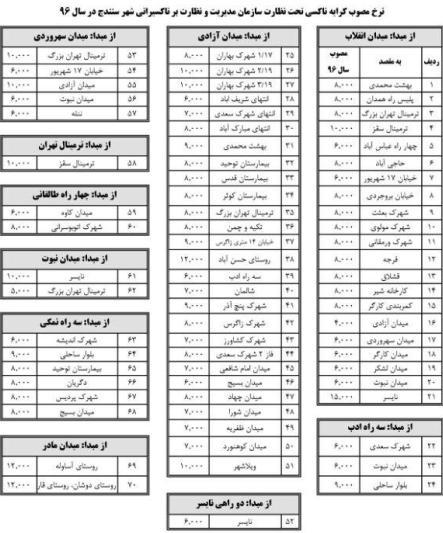 نرخ مصوب کرایه تاکسی تحت نظارت سازمان مدیریت و نظارت بر تاکسیرانی شهر سنندج در سال ۹۶
از مبدا: میدان انقلاب
ردیف به مقصد مصوب سال ۹۶
۱ بهشت محمدی ۸,۰۰۰
۲ پلیس راه همدان ۸,۰۰۰
۳ ترمینال تهران بزرگ ۸,۰۰۰
۴ ترمینال سقز ۱۰,۰۰۰
۵ چهار راه عباس آباد ۶,۰۰۰
۶ حاجی آباد ۸,۰۰۰
۷ خیابان ۱۷ شهریور ۶,۰۰۰
۸ خیابان بروجردی ۸,۰۰۰
۹ شهرک بعثت ۸,۰۰۰
۱۰ شهرک مولوی ۸,۰۰۰
۱۱ شهرک ورمقانی ۸,۰۰۰
۱۲ فرجه ۸,۰۰۰
۱۳ قشلاق ۸,۰۰۰
۱۴ کارخانه شیر ۸,۰۰۰
۱۵ کمربندی کارگر ۸,۰۰۰
۱۶ میدان آزادی ۴,۰۰۰
۱۷ میدان سهروردی ۶,۰۰۰
۱۸ میدان کارگر ۶,۰۰۰
۱۹ میدان لشکر ۶,۰۰۰
۲۰ میدان نبوت ۶,۰۰۰
۲۱ نایسر ۱۵,۰۰۰
از مبدا: سه راه ادب
۲۲ شهرک سعدی ۶,۰۰۰
۲۳ میدان نبوت ۶,۰۰۰
۲۴ بلوار ساحلی ۹,۰۰۰
از مبدا: میدان آزادی
۲۵ ۱/۱۷ شهرک بهاران ۸,۰۰۰
۲۶ ۲/۱۹ شهرک بهاران ۱۰,۰۰۰
۲۷ ۳/۱۹ شهرک بهاران ۱۰,۰۰۰
۲۸ انتهای شریف اباد ۶,۰۰۰
۲۹ انتهای شهرک سعدی ۷,۰۰۰
۳۰ انتهای مبارک آباد ۸,۰۰۰
۳۱ بهشت محمدی ۹,۰۰۰
۳۲ بیمارستان توحید ۸,۰۰۰
۳۳ بیمارستان قدس ۸,۰۰۰
۳۴ بیمارستان کوثر ۸,۰۰۰
۳۵ ترمینال تهران بزرگ ۸,۰۰۰
۳۶ تکیه و چمن ۸,۰۰۰
۳۷ خیابان ۱۴ متری زاگرس ۹,۰۰۰
۳۸ روستای حسن آباد ۱۲,۰۰۰
۳۹ سه راه ادب ۶,۰۰۰
۴۰ شالمان ۷,۰۰۰
۴۱ شهرک پنج آذر ۹,۰۰۰
۴۲ شهرک زاگرس ۸,۰۰۰
۴۳ شهرک کشاورز ۷,۰۰۰
۴۴ فاز ۲ شهرک سعدی ۸,۰۰۰
۴۵ میدان امام شافعی ۷,۰۰۰
۴۶ میدان بسیج ۶,۰۰۰
۴۷ میدان جهاد ۸,۰۰۰
۴۸ میدان شورا ۷,۰۰۰
۴۹ میدان ظفریه ۷,۰۰۰
۵۰ میدان کوهنورد ۷,۰۰۰
۵۱ ویلاشهر ۱۰,۰۰۰
از مبدا: دو راهی نایسر
۵۲ نایسر ۶,۰۰۰
از مبدا: میدان سهروردی
۵۳ ترمینال تهران بزرگ ۱۰,۰۰۰
۵۴ خیابان ۱۷ شهریور ۶,۰۰۰
۵۵ میدان آزادی ۱۰,۰۰۰
۵۶ میدان نبوت ۶,۰۰۰
۵۷ ننله ۶,۰۰۰
از مبدا: ترمینال تهران
۵۸ ترمینال سقز ۱۰,۰۰۰
از مبدا: چهار راه طالقانی
۵۹ میدان کاوه ۶,۰۰۰
۶۰ شهرک اتوبوسرانی ۸,۰۰۰
از مبدا: میدان نبوت
۶۱ نایسر ۱۰,۰۰۰
۶۲ ترمینال تهران بزرگ ۵,۰۰۰
از مبدا: سه راه نمکی
۶۳ شهرک اندیشه ۶,۰۰۰
۶۴ بلوار ساحلی ۹,۰۰۰
۶۵ بیمارستان توحید ۸,۰۰۰
۶۶ دگریان ۸,۰۰۰
۶۷ شهرک پردیس ۸,۰۰۰
۶۸ میدان بسیج ۸,۰۰۰
از مبدا: میدان مادر
۶۹ روستای آساوله ۱۲,۰۰۰
۷۰ روستای دوشان، روستای قار ۱۲,۰۰۰